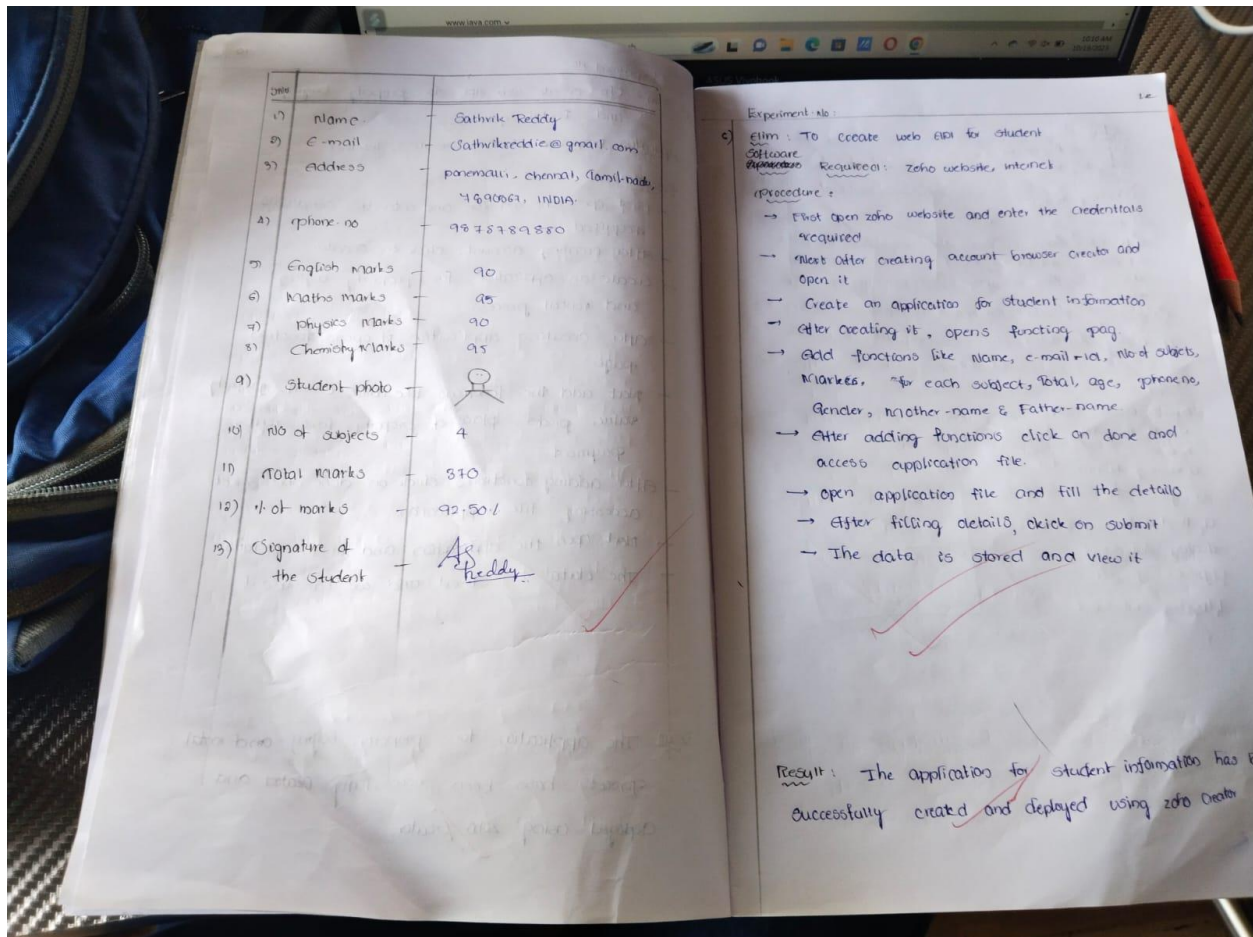 www.java.com
S.No
1) Name - Sathvik Reddy
2) E-mail - Sathvikreddie@gmail.com
3) Address - ponemalli, chennai, Tamil-nadu,
7890067, INDIA.
4) phone no - 9878789880
5) English Marks - 90
6) Maths marks - 95
7) physics Marks - 90
8) Chemistry Marks - 95
9) Student photo -
10) No of subjects - 4
11) Total marks - 370
12) % of marks - 92.50%
13) Signature of
the student - Reddy
Experiment No:
c) Aim: To Create web API for student
Software
Required: Zoho website, internet
procedure:
→ First open zoho website and enter the Credentials
required
→ Next after creating account browser creator and
open it
→ Create an application for student information
→ After creating it, opens functing pag
→ Add functions like Name, e-mail-id, No of subjects,
Markes, for each subject, Total, age, phone no,
Gender, mother-name & Father-name.
→ After adding functions click on done and
access application file.
→ open application file and fill the details
→ After filling details, ckick on submit
→ The data is stored and view it
Result: The application for student information has
successfully created and deployed using zoho Creator